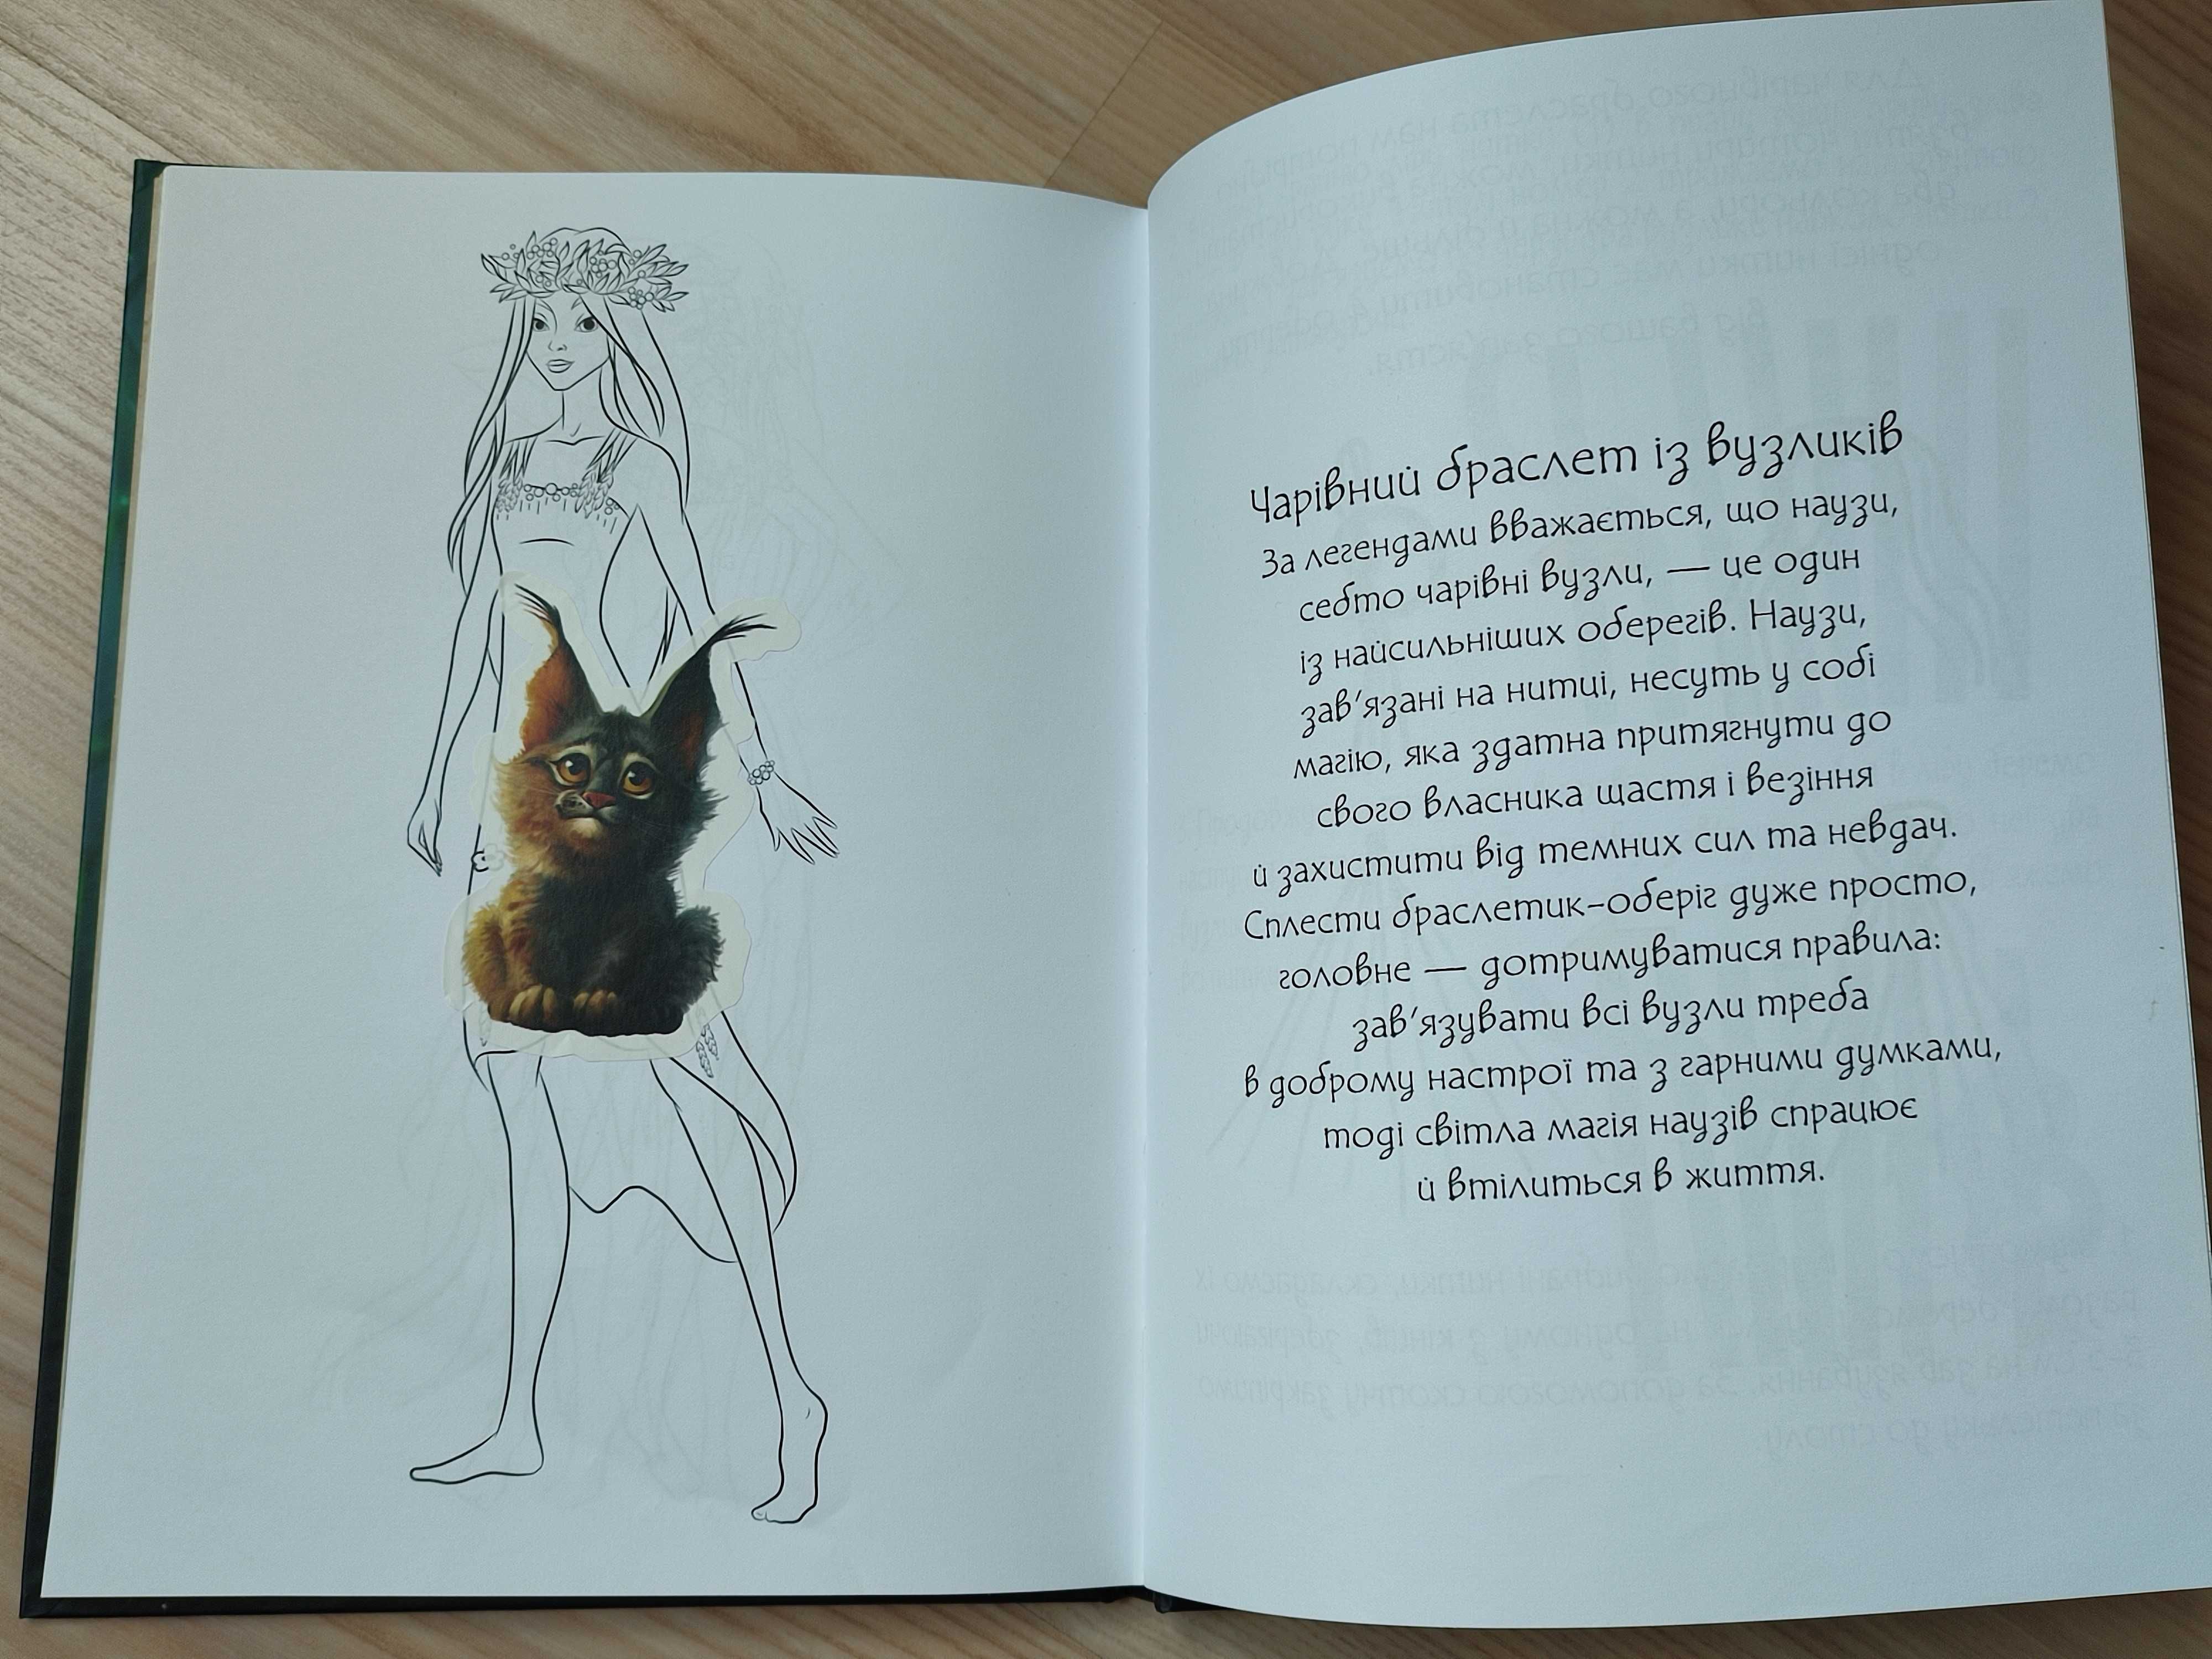 Чарівний браслет із вузликів
За легендами вважається, що наузи,
себто чарівні вузли, — це один
із найсильніших оберегів. Наузи,
зав'язані на нитці, несуть у собі
магію, яка здатна притягнути до
свого власника щастя і везіння
й захистити від темних сил та невдач.
Сплести браслетик-оберіг дуже просто,
головне — дотримуватися правила:
зав'язувати всі вузли треба
в доброму настрої та з гарними думками,
тоді світла магія наузів спрацює
й втілиться в життя.